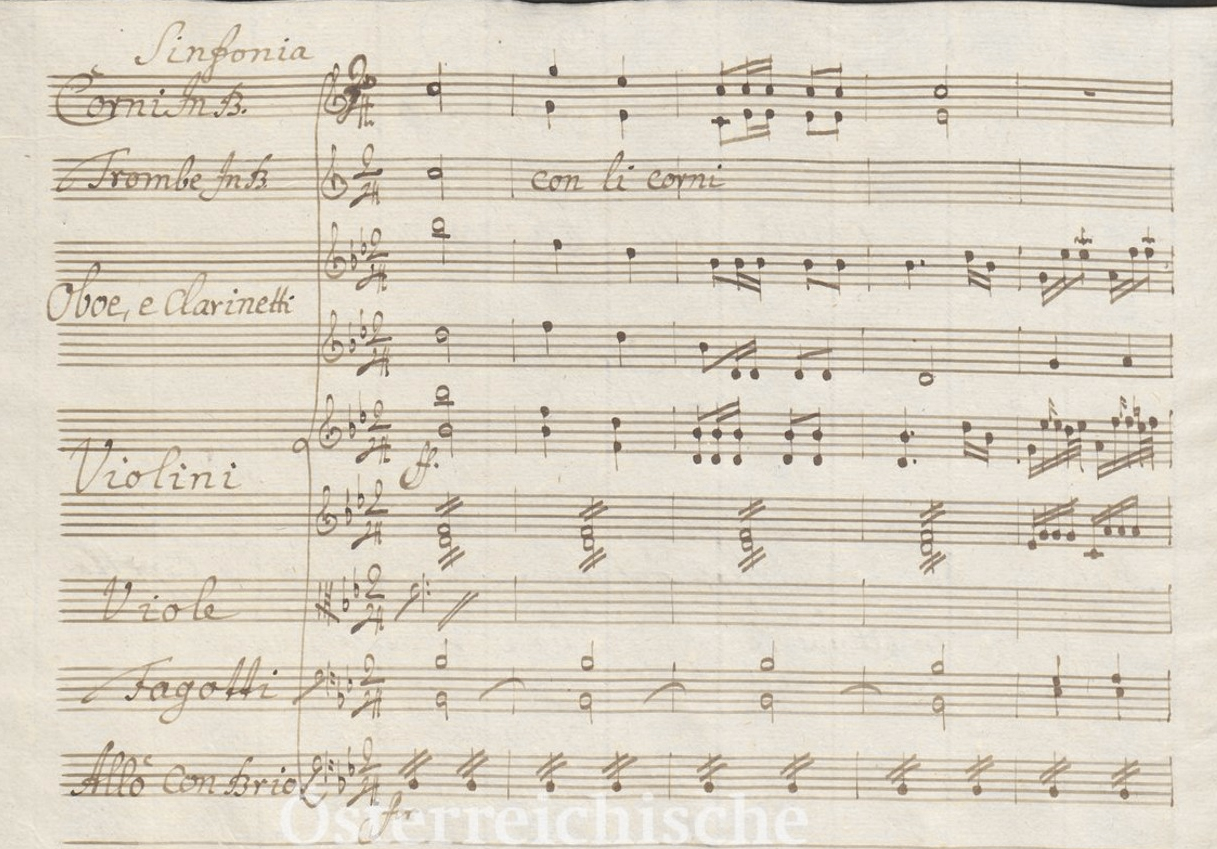 Sinfonia
Corni In B.
Trombe In B.
con li corni
Oboe, e Clarinetti
Violini
ff.
Viole
Fagotti
Allo con Brio
Österreichische